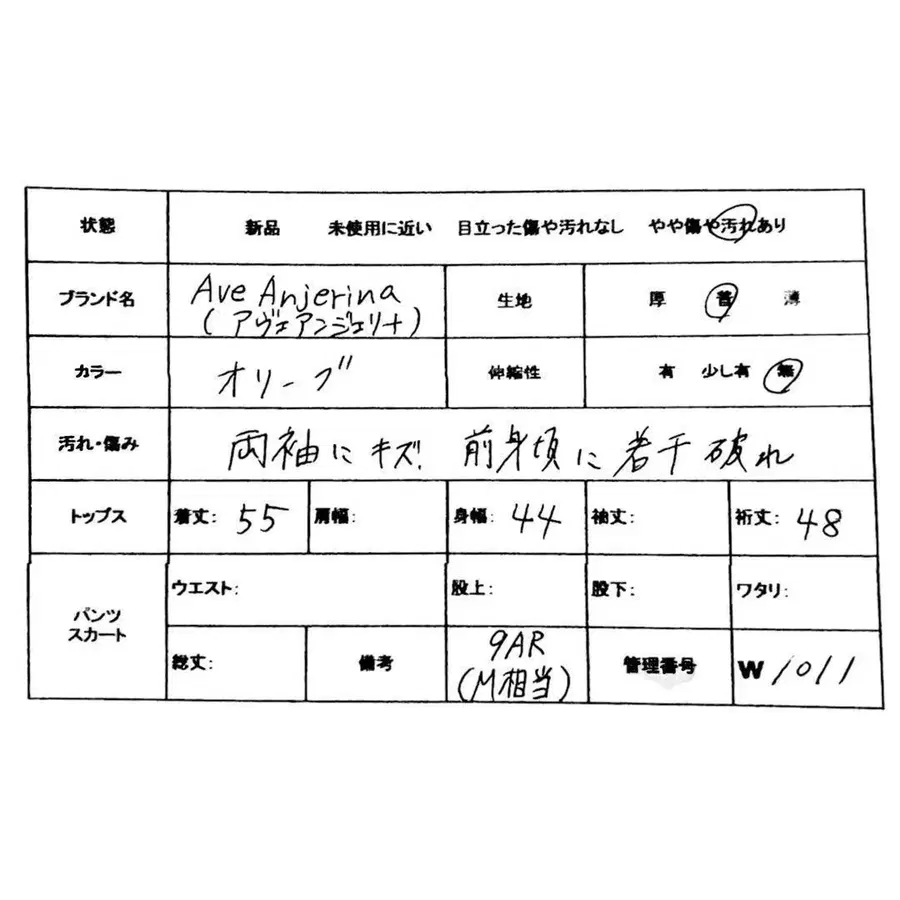 状態 新品 未使用に近い 目立った傷や汚れなし やや傷や汚れあり
ブランド名 Ave Anjerina 生地 厚 普 薄
(アヴェアンジェリナ)
カラー オリーブ 伸縮性 有 少し有 無
汚れ・傷み 両袖にキズ. 前身頃に若干破れ
トップス 着丈: 55 肩幅: 身幅: 44 袖丈: 裄丈: 48
パンツ
スカート
ウエスト: 股上: 股下: ワタリ:
総丈: 備考 9AR
(M相当) 管理番号 W 1011